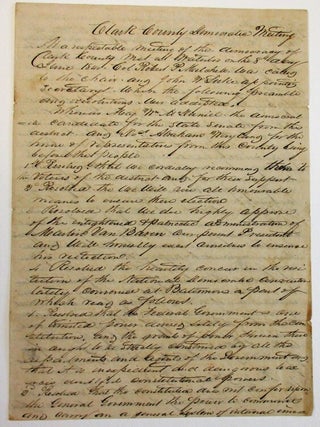 Clark County Democratic Meeting
At a respectable meeting of the democracy of
Clark County met at on the 8th day
June Col Robert P. was called
to the Chair and John W. appointed
Secretary. When the following preamble
and resolutions were adopted.
Whereas Maj. Wm. the democrat
is a candidate for the State Senate from this
district and Abraham for the
house of representatives from this County being
before the people
1 Resolved that we cordially recommend them to
the voters of the district and for their support
2d Resolved that we will use all honourable
means to ensure their election
3 Resolved that we highly approve
of the & patriotic administration of
Martin Van Buren our present President
and will honestly to
his reelection.
4 Resolved we heartily concur in the
of the National Democratic Convention
lately convened at Baltimore a part of
which read as follows.
1. Resolved that the Federal Government is one
of limited power derived solely from the con
stitution, and the grants of power therein
ought to be strictly construed by all the
departments and agents of the Government and
that it is inexpedient and dangerous to
exercise doubtful constitutional powers.
2d Resolved that the constitution does not confer upon
the General Government the power to commence
and carry on a general system of internal